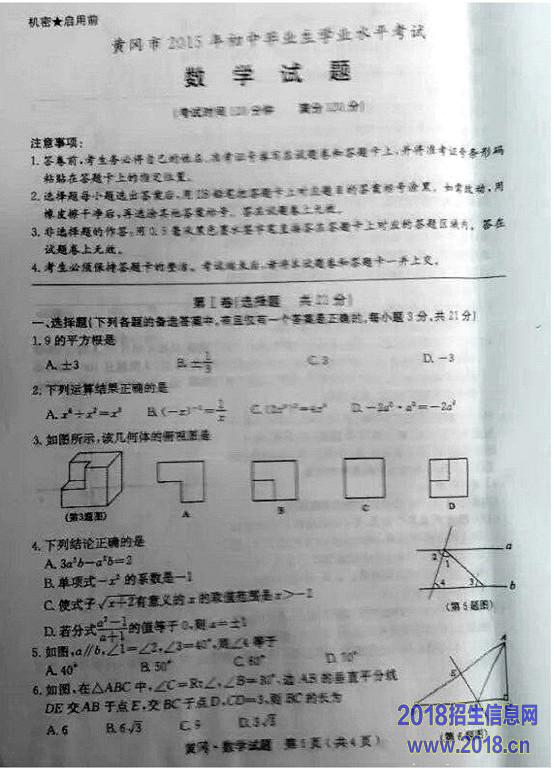 机密★启用前
黄冈市 2015 年初中毕业生学业水平考试
数 学 试 题
(考试时间120分钟 满分120分)
注意事项:
1.答卷前,考生务必将自己的姓名、准考证号填写在试题卷和答题卡上,并将准考证号条形码
粘贴在答题卡上的指定位置。
2.选择题每小题选出答案后,用2B铅笔把答题卡上对应题目的答案标号涂黑。如需改动,用
橡皮擦干净后,再选涂其他答案标号。答在试题卷上无效。
3.非选择题的作答:用0.5毫米黑色墨水签字笔直接答在答题卡上对应的答题区域内。答在
试题卷上无效。
4.考生必须保持答题卡的整洁。考试结束后,请将本试题卷和答题卡一并上交。
第Ⅰ卷(选择题 共21分)
一、选择题(下列各题的备选答案中,有且仅有一个答案是正确的,每小题3分,共21分)
1.9的平方根是
A.±3 B.±1/3 C.3 D.-3
2.下列运算结果正确的是
A.x⁶÷x²=x³ B.(-x)⁻¹=1/x C.(2x³)²=4x⁶ D.-2a²·a³=-2a⁶
3.如图所示,该几何体的俯视图是
(第3题图) A B C D
4.下列结论正确的是
A.3a²b-a²b=2
B.单项式-x²的系数是-1
C.使式子√x+2有意义的x的取值范围是x>-2
D.若分式a²-1/a+1的值等于0,则a=±1
2 1 4 3 a b
(第5题图)
5.如图,a∥b,∠1=∠2,∠3=40°,则∠4等于
A.40° B.50° C.60° D.70°
6.如图,在△ABC中,∠C=Rt∠,∠B=30°,边AB的垂直平分线
DE交AB于点E,交BC于点D,CD=3,则BC的长为
A.6 B.6√3 C.9 D.3√3
A E
(第6题图)
黄冈·数学试题 第1页(共4页)
2018招生信息网
www.2018.cn